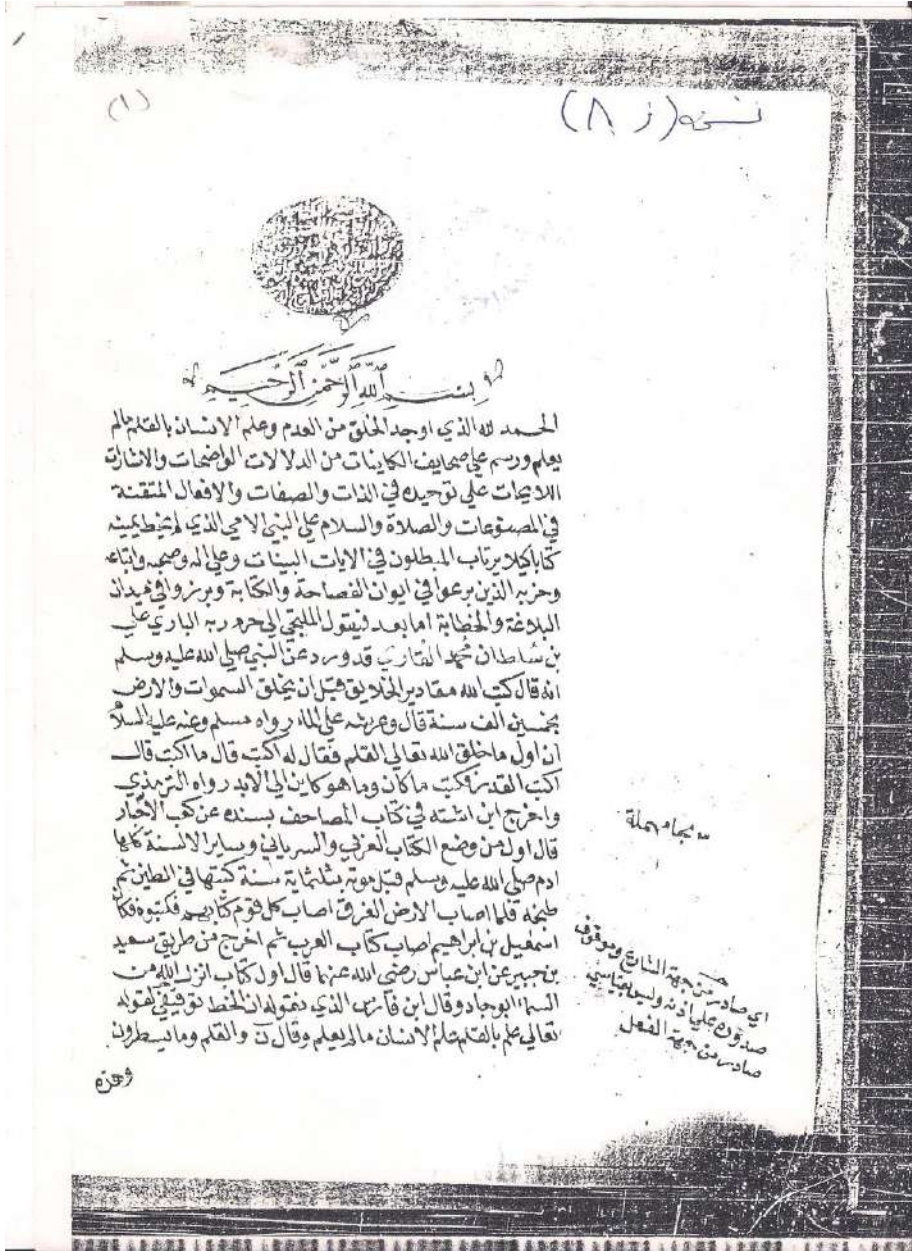 نسخة (ز ٨)
(١)
بسم الله الرحمن الرحيم
الحمد لله الذي اوجد الخلق من العدم وعلم الانسان بالقلم مالم
يعلم ورسم علي صحايف الكاينات من الدلالات الواضحات والاشارات
اللايحات علي توحيده في الذات والصفات والافعال المتقنة
في المصنوعات والصلاة والسلام علي النبي الامي الذي لم يخط بيمينه
كتابا كيلا يرتاب المبطلون في الايات البينات وعلي اله وصحبه واتباعه
وحزبه الذين برعوا في ايوان الفصاحة والكتابة وبرزوا في ميدان
البلاغة والخطابة اما بعد فيقول الملتجي الي حرم ربه الباري علي
بن سلطان محمد القاري قد ورد عن النبي صلي الله عليه وسلم
انه قال كتب الله مقادير الخلايق قبل ان يخلق السموات والارض
بخمسين الف سنة قال وعرشه علي الماء رواه مسلم وعنه عليه السلام
ان اول ما خلق الله تعالي القلم فقال له اكتب قال ما اكتب قال
اكتب القدر فكتب ما كان وما هو كاين الي الابد رواه الترمذي
واخرج ابن اشته في كتاب المصاحف بسنده عن كعب الاحبار
قال اول من وضع الكتاب العربي والسرياني وساير الالسنة كلها
ادم صلي الله عليه وسلم قبل موته بثلثماية سنة كتبها في الطين ثم
طبخه فلما اصاب الارض الغرق اصاب كل قوم كتابهم فكتبوه فكان
اسمعيل بن ابراهيم اصاب كتاب العرب ثم اخرج من طريق سعيد
بن جبير عن ابن عباس رضي الله عنهما قال اول كتاب انزله الله من
السما ابوجاد وقال ابن فارس الذي نقوله ان الخط توقيفي لقوله
تعالي علم بالقلم علم الانسان مالم يعلم وقال ن والقلم وما يسطرون
وهذه
بحا مهملة
اي صادر من جهة الشارع وموقوف
صدوره علي اذنه وليس بقياسي
صادر من جهة الفعل